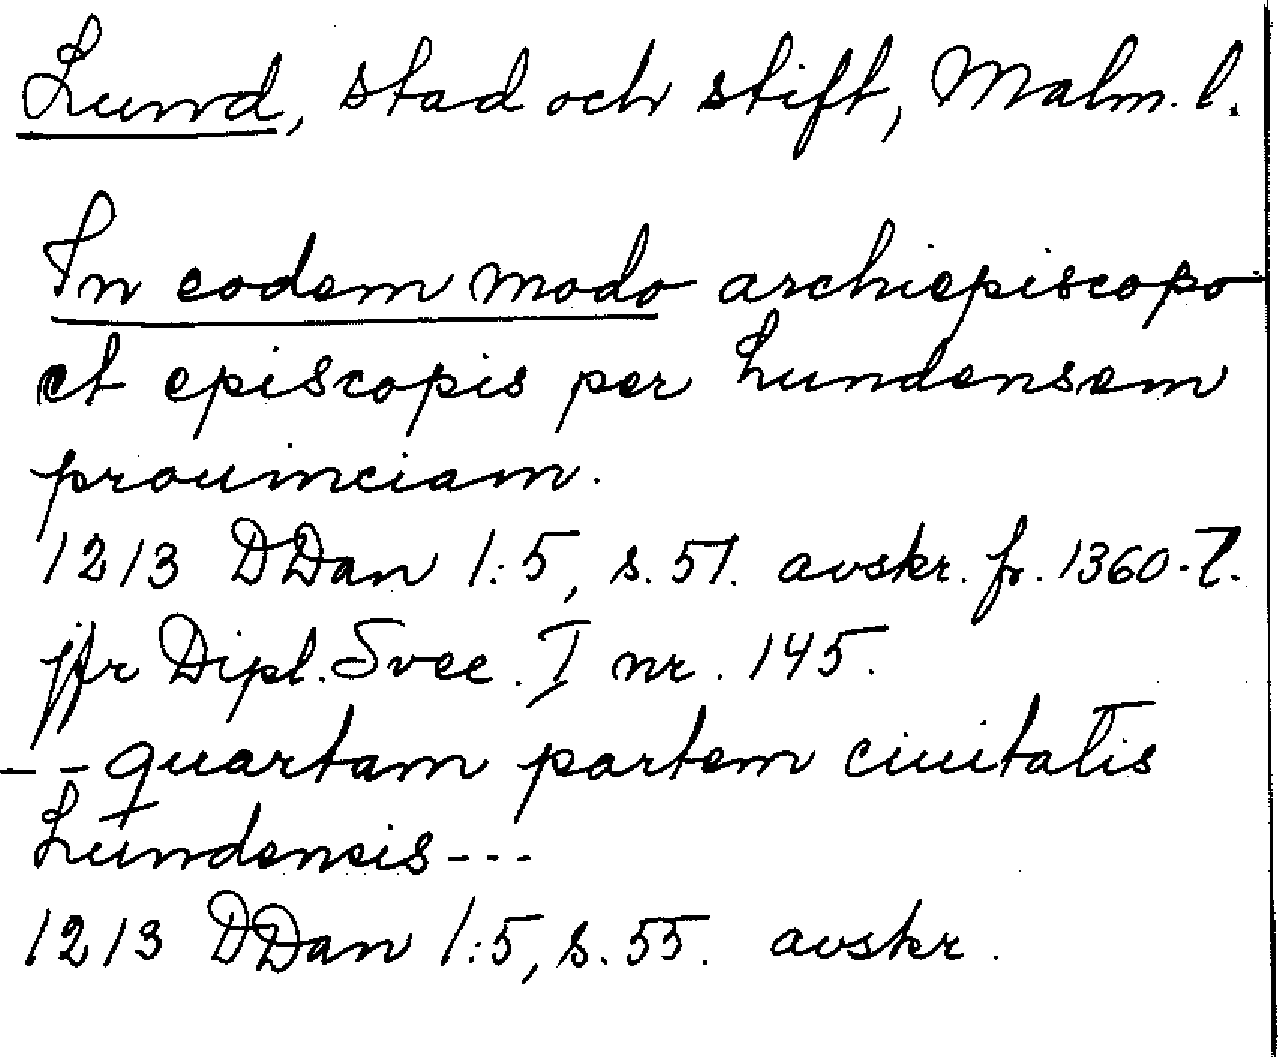 Lund, stad och stift, Malm. l.
In eodem modo archiepiscopo
et episcopis per Lundensem
prouinciam.
1213 DDan 1:5, s. 51. avskr. fr. 1360-t.
jfr Dipl. Svec. I nr. 145.
- - quartam partem ciuitatis
Lundensis - - -
1213 DDan 1:5, s. 55. avskr.